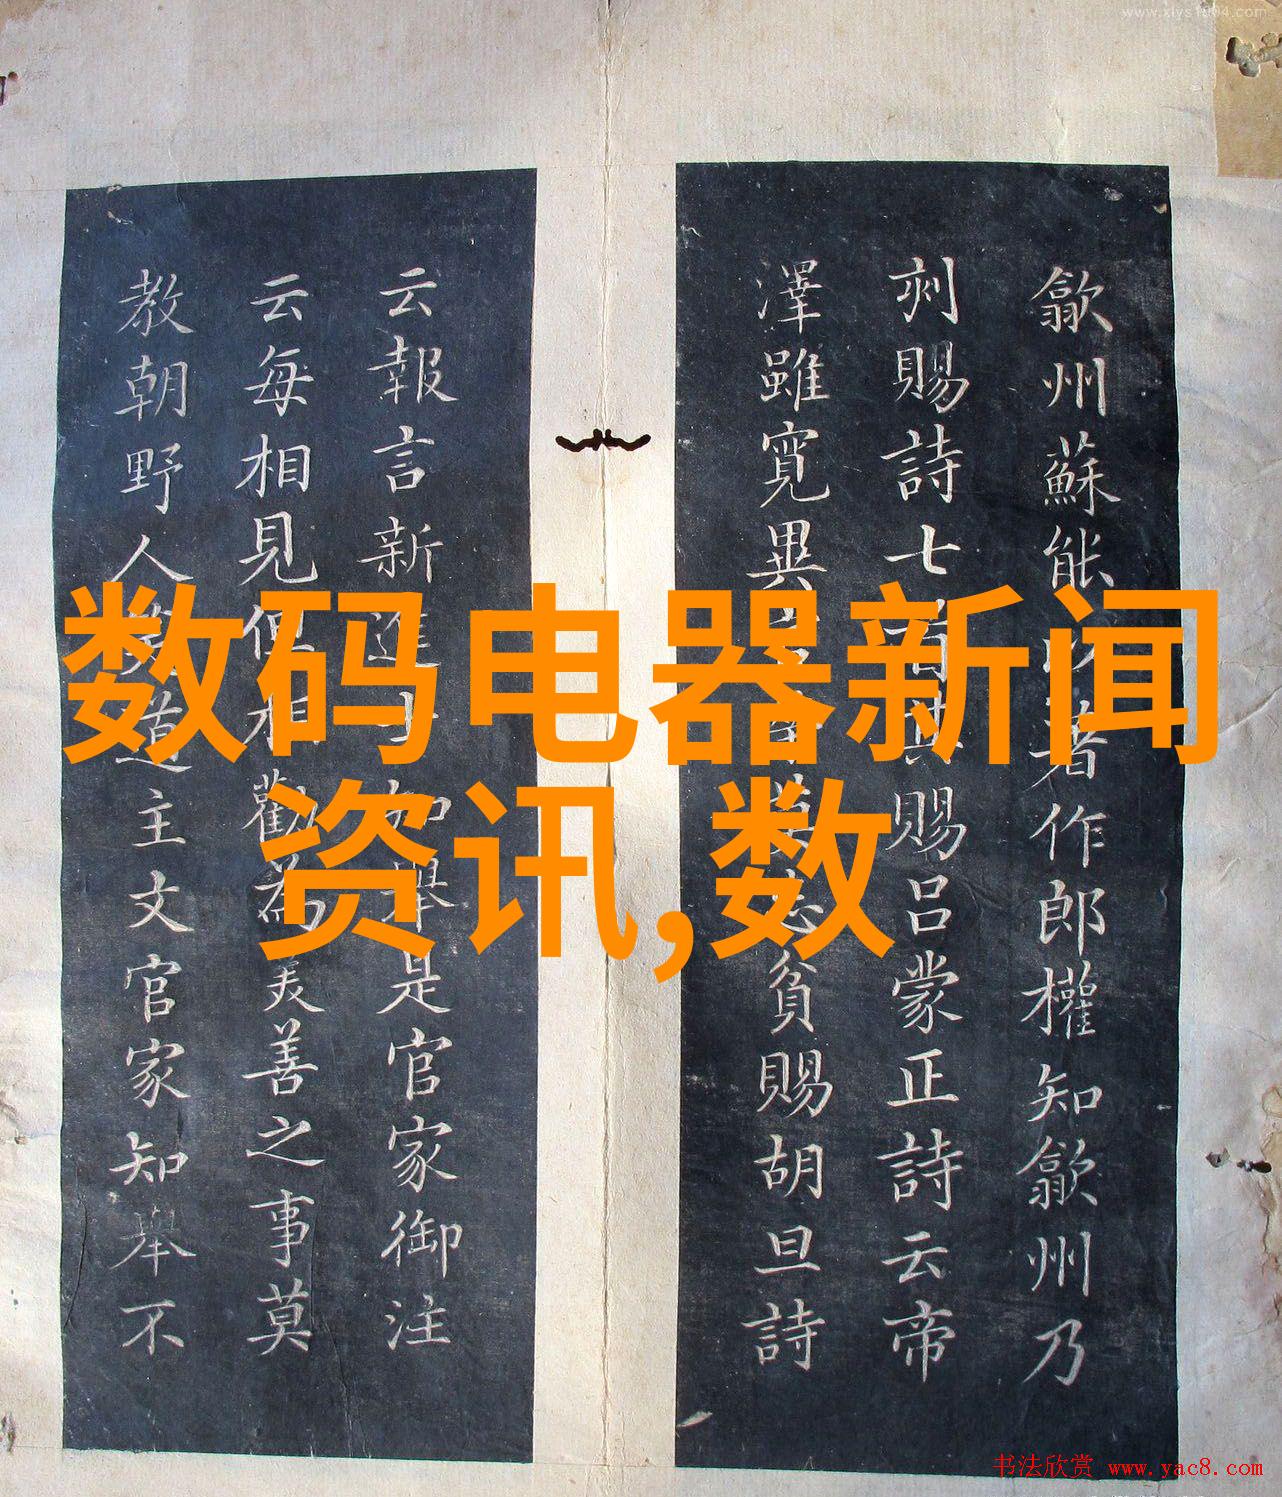 www.xiys1004.com
歙州蘇能
著作郎權知歙州乃
刻賜詩七
賜呂蒙正詩云帝
澤雖寬異
貧賜胡旦詩
云報言新進
舉是官家御注
云每相見但相勸為美善之事莫
教朝野人
道主文官家知舉不
数码电器新闻
资讯,数
书法欣赏 www.yac8.com